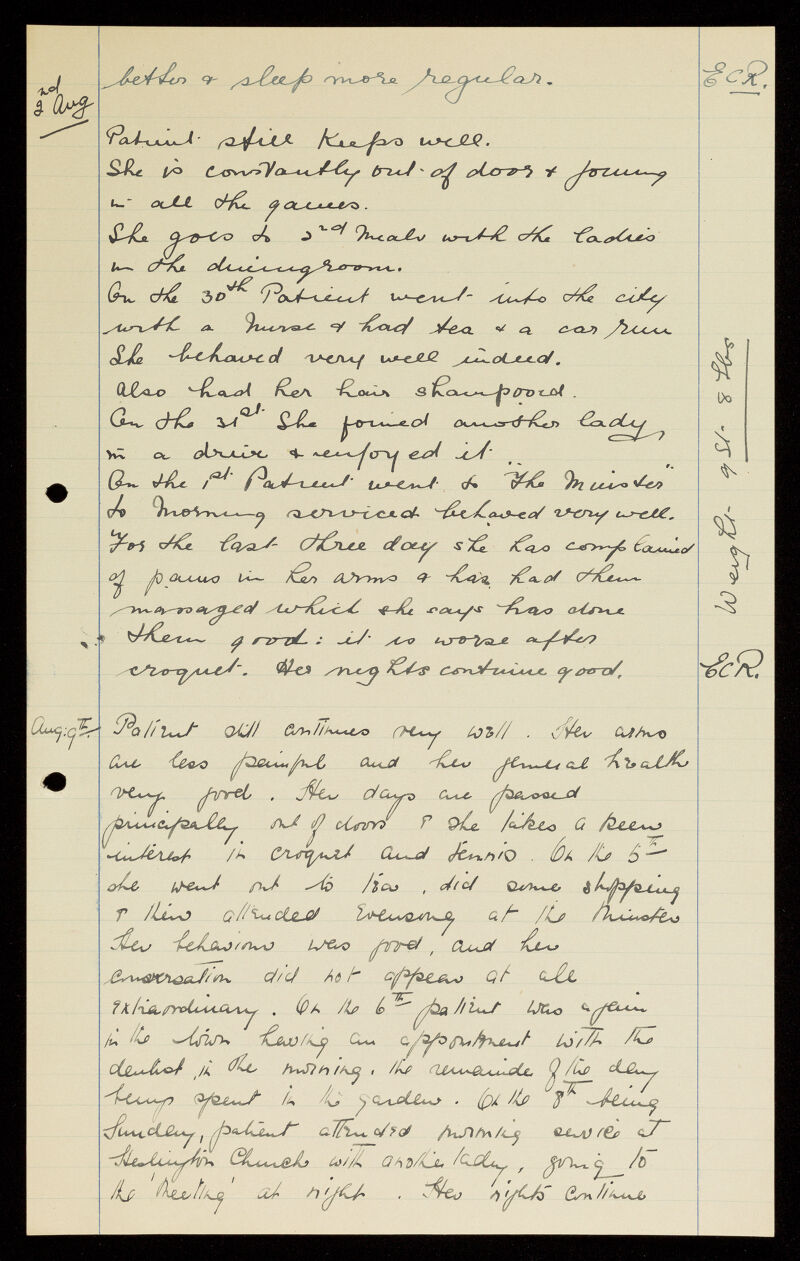 better & sleep more regular.
ECR.
2nd Aug
Patient still keeps well.
She is constantly out of door & joining
in all the games.
She goes to 2nd Meals with the ladies
in the diningroom.
On the 30th Patient went into the city
with a Nurse & had tea & a car run
She behaved very well indeed.
Also had her hair shampooed.
On the 31st She joined another lady,
in a drive & enjoyed it.
On the 1st Patient went to "The Minster"
to Morning serviced behaved very well.
For the last three day she has complained
of pains in her arms & has had them
massaged which she says has done
them good: it is worse after
croquet. Her nights continue good.
ECR.
Weight- 9 St- 8 lbs
Aug: 9th.
Patient still continues very well. Her arms
are less painful and her general health
very good. Her days are passed
principally out of doors & she takes a keen
interest in croquet and tennis. On the 5th
she went out to tea, did some shopping
& then attended Evensong at the Minster
Her behaviour was good, and her
conversation did not appear at all
extraordinary. On the 6th patient was again
in the town having an appointment with the
dentist in the morning. the remainder of the day
being spent in the garden. On the 8th being
Sunday, patient attended morning service at
Heslington Church with another lady, going to
the 'Meeting' at night. Her nights continue